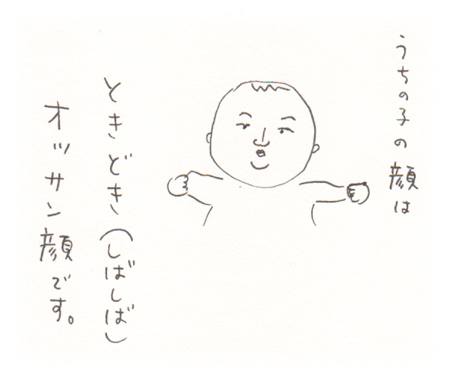 うちの子の顔は
ときどき(しばしば)
オッサン顔です。